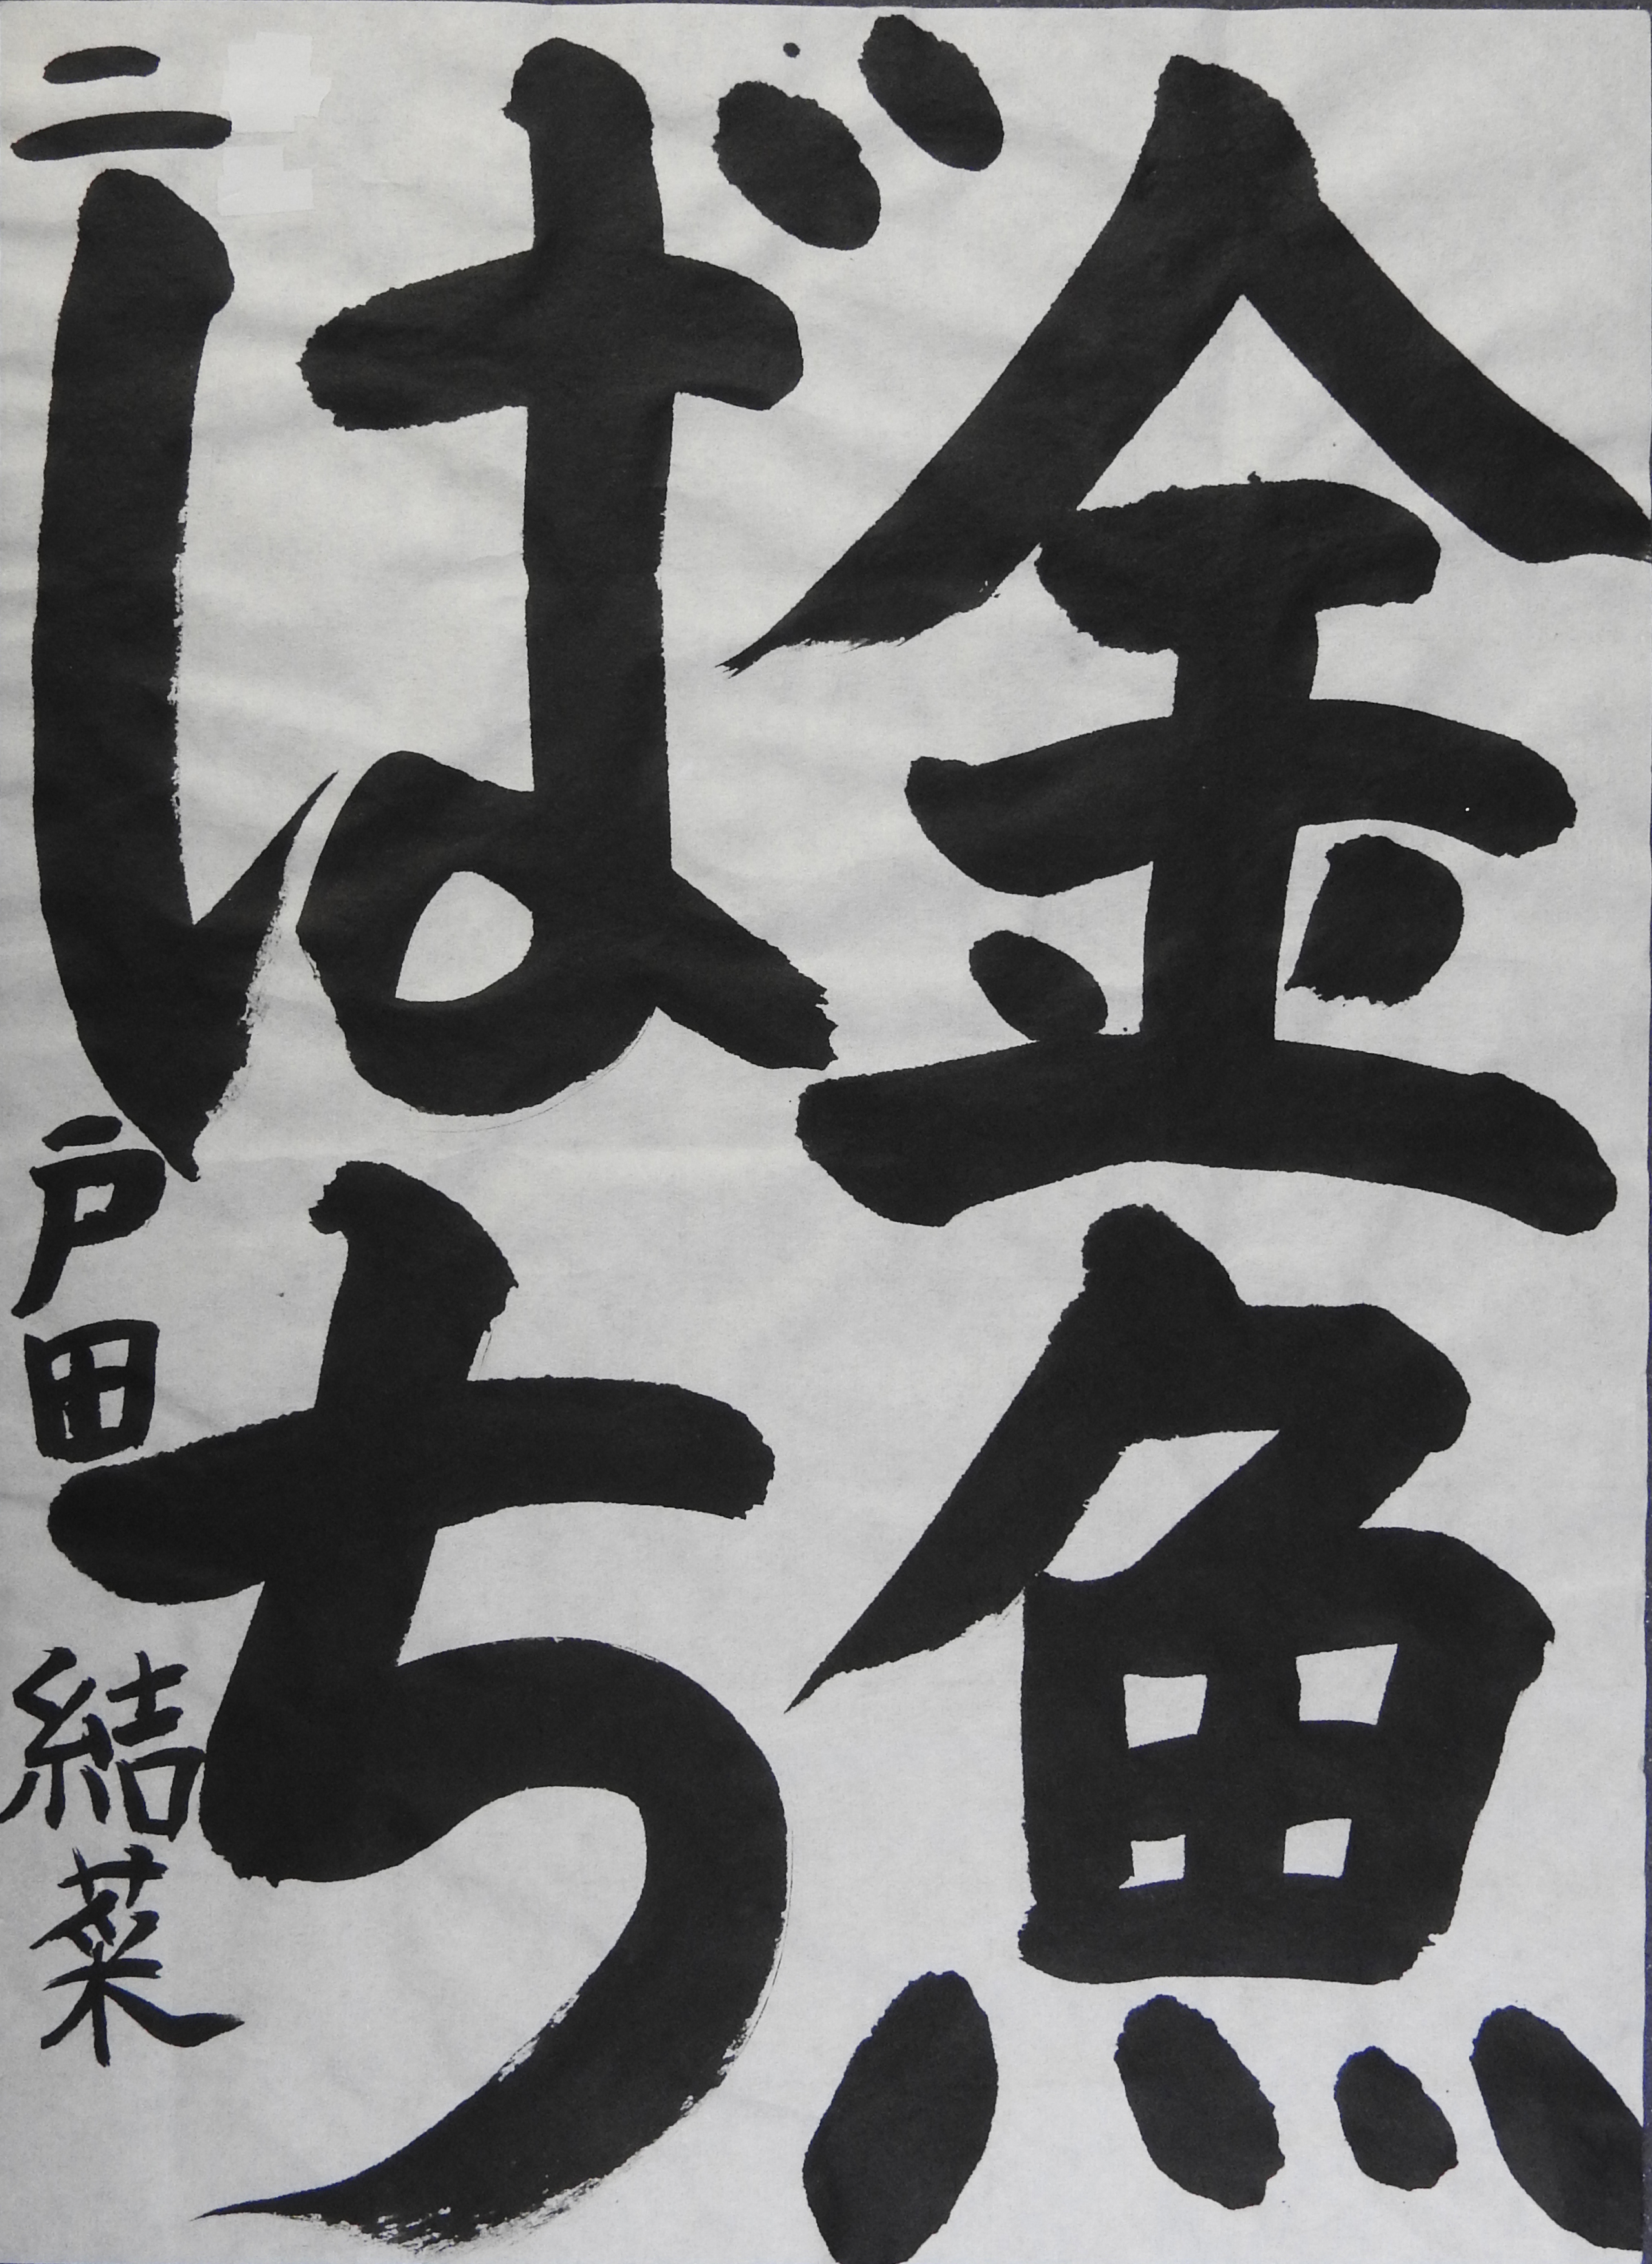 金魚
ばち
二 戸田 結菜